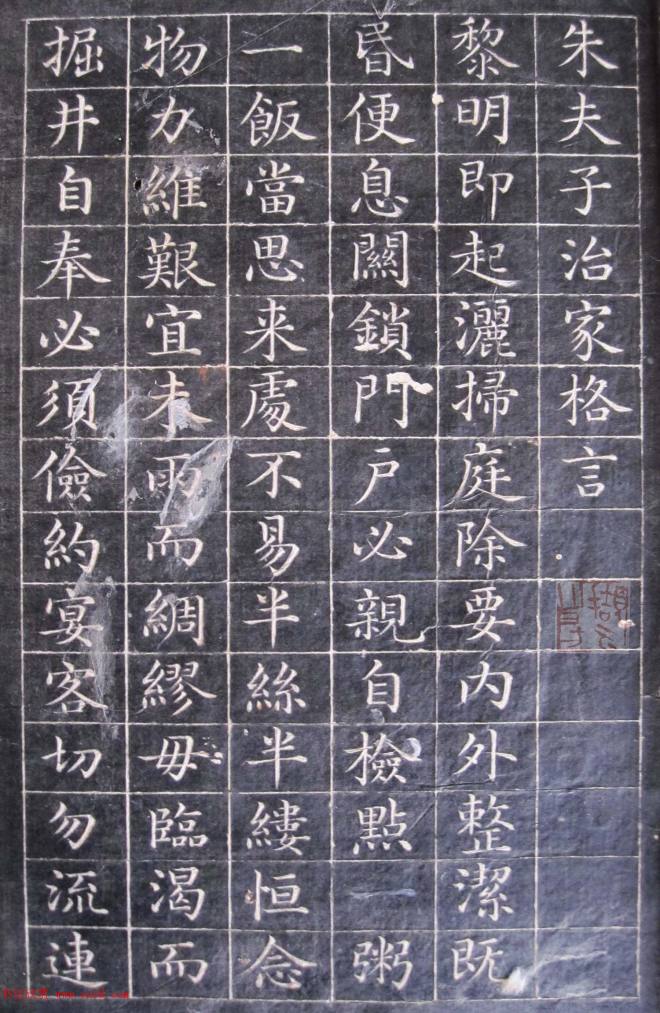 朱夫子治家格言
黎明即起灑掃庭除要内外整潔既
昏便息關鎖門戶必親自檢點一粥
一飯當思来處不易半絲半縷恒念
物力維艱宜未雨而綢繆毋臨渴而
掘井自奉必須儉約宴客切勿流連